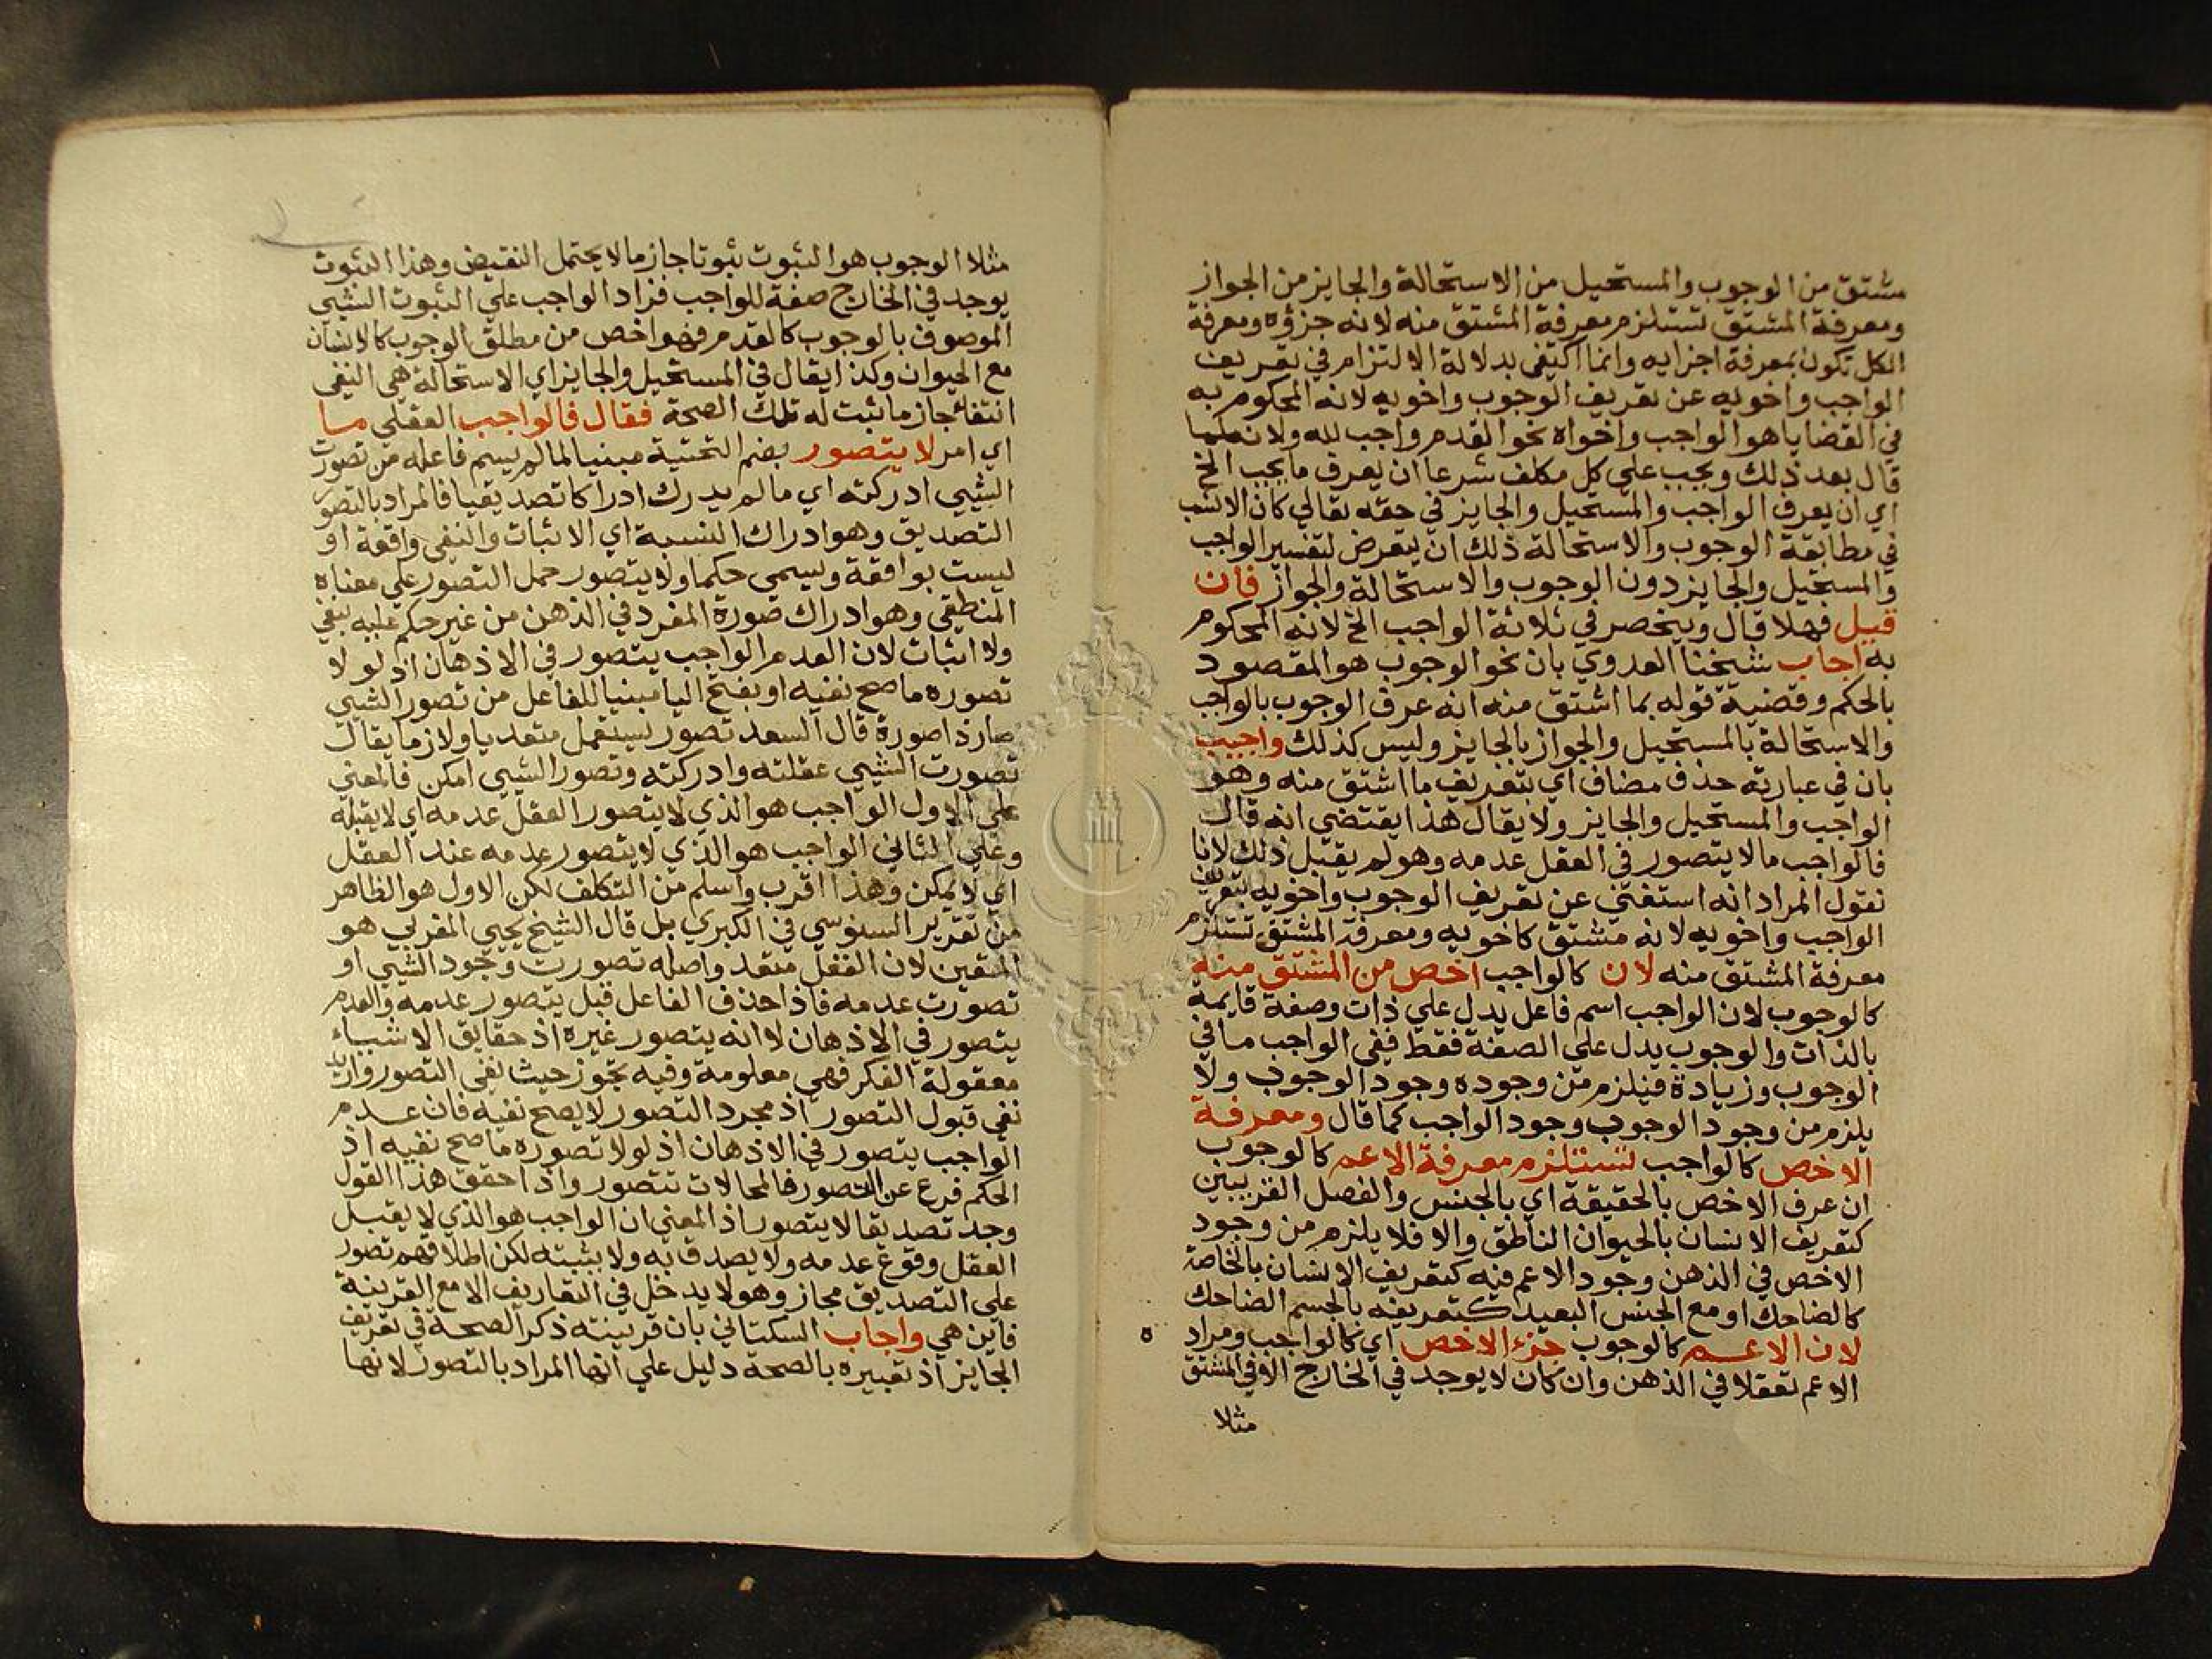 مشتق من الوجوب والمستحيل من الاستحالة والجايز من الجواز
ومعرفة المشتق تستلزم معرفة المشتق منه لانه جزؤه ومعرفة
الكل تكون بمعرفة اجزايه وانما اكتفى بدلالة الالتزام في تعريف
الواجب واخويه عن تعريف الوجوب واخويه لانه المحكوم به
في القضايا هو الواجب واخواه نحو القدم واجب لله ولانه لما
قال بعد ذلك ويجب على كل مكلف شرعا ان يعرف ما يجب الخ
اي ان يعرف الواجب والمستحيل والجايز في حقه تعالي كان الانسب
في مطابقة الوجوب والاستحالة ذلك ان يتعرض لتفسير الواجب
والمستحيل والجايز دون الوجوب والاستحالة والجواز فان
قيل فهلا قال وينحصر في ثلاثة الواجب الخ لانه المحكوم
به اجاب شيخنا العدوي بان نحو الوجوب هو المقصود
بالحكم وقضية قوله بما اشتق منه انه عرف الوجوب بالواجب
والاستحالة بالمستحيل والجواز بالجايز وليس كذلك واجيب
بان في عبارته حذف مضاف اي بتعريف ما اشتق منه وهو
الواجب والمستحيل والجايز ولا يقال هذا يقتضي انه قال
فالواجب ما لا يتصور في العقل عدمه وهو لم يقبل ذلك لانا
نقول المراد انه استغني عن تعريف الوجوب واخويه بتعريف
الواجب واخويه لانه مشتق كاخويه ومعرفة المشتق تستلزم
معرفة المشتق منه لان كالواجب اخص من المشتق منه
كالوجوب لان الواجب اسم فاعل يدل علي ذات وصفة قايمة
بالذات والوجوب يدل علي الصفة فقط ففي الواجب ما في
الوجوب وزيادة فيلزم من وجوده وجود الوجوب ولا
يلزم من وجود الوجوب وجود الواجب كما قال ومعرفة
الاخص كالواجب تستلزم معرفة الاعم كالوجوب
ان عرف الاخص بالحقيقة اي بالجنس والفصل القريبين
كتعريف الانسان بالحيوان الناطق والا فلا يلزم من وجود
الاخص في الذهن وجود الاعم فيه كتعريف الانسان بالخاصة
كالضاحك او مع الجنس البعيد كتعريفه بالجسم الضاحك
لان الاعم كالوجوب جزء الاخص اي كالواجب ومراد ه
الاعم تعقلا في الذهن وان كان لا يوجد في الخارج الا في المشتق
مثلا
مثلا الوجوب هو الثبوت ثبوتا جازما لا يحتمل النقيض وهذا الثبوت
يوجد في الخارج صفة للواجب فزاد الواجب علي الثبوت الشيي
الموصوف بالوجوب كالقدم فهو اخص من مطلق الوجوب كالانسان
مع الحيوان وكذا يقال في المستحيل والجايز اي الاستحالة هي النفي
انتفاء جازما ثبت له تلك الصحة فقال فالواجب العقلي ما
اي امر لا يتصور بضم التحتية مبنيا لما لم يسم فاعله من تصورت
الشيي ادركته اي ما لم يدرك ادراكا تصديقيا فالمراد بالتصور
التصديق وهو ادراك النسبة اي الاثبات والنفي واقعة او
ليست بواقعة ويسمي حكما ولا يتصور حمل التصور علي معناه
المنطقي وهو ادراك صورة المفرد في الذهن من غير حكم عليه بنفي
ولا اثبات لان العدم الواجب يتصور في الاذهان اذ لو لا
تصوره ما صح نفيه او بفتح اليا مبنيا للفاعل من تصور الشيي
صار ذا صورة قال السعد تصور يستعمل متعديا ولازما يقال
تصورت الشيي عقلته وادركته وتصور الشيي امكن فالمعني
علي الاول الواجب هو الذي لا يتصور العقل عدمه اي لا يقبله
وعلي الثاني الواجب هو الذي لا يتصور عدمه عند العقل
اي لا يمكن وهذا اقرب واسلم من التكلف لكن الاول هو الظاهر
من تقرير السنوسي في الكبري بل قال الشيخ يحيي المغربي هو
المتعين لان الفعل متعد واصله تصورت وجود الشيي او
تصورت عدمه فاذا حذف الفاعل قيل يتصور عدمه والعدم
يتصور في الاذهان لا انه يتصور غيره اذ حقايق الاشياء
معقولة الفكر فهي معلومة وفيه تجوز حيث نفي التصور واريد
نفي قبول التصور اذ مجرد التصور لا يصح نفيه فان عدم
الواجب يتصور في الاذهان اذ لولا تصوره ما صح نفيه اذ
الحكم فرع عن التصور فالمحالات تتصور واذا حقق هذا القول
وجد تصديقا لا يتصور اذ المعني ان الواجب هو الذي لا يقبل
العقل وقوع عدمه ولا يصدق به ولا يثبته لكن اطلاقهم تصور
علي التصديق مجاز وهو لا يدخل في التعاريف الا مع القرينة
فاين هي واجاب السكتاني بان قرينته ذكر الصحة في تعريف
الجايز اذ تعبيره بالصحة دليل علي انها المراد بالتصور لانها